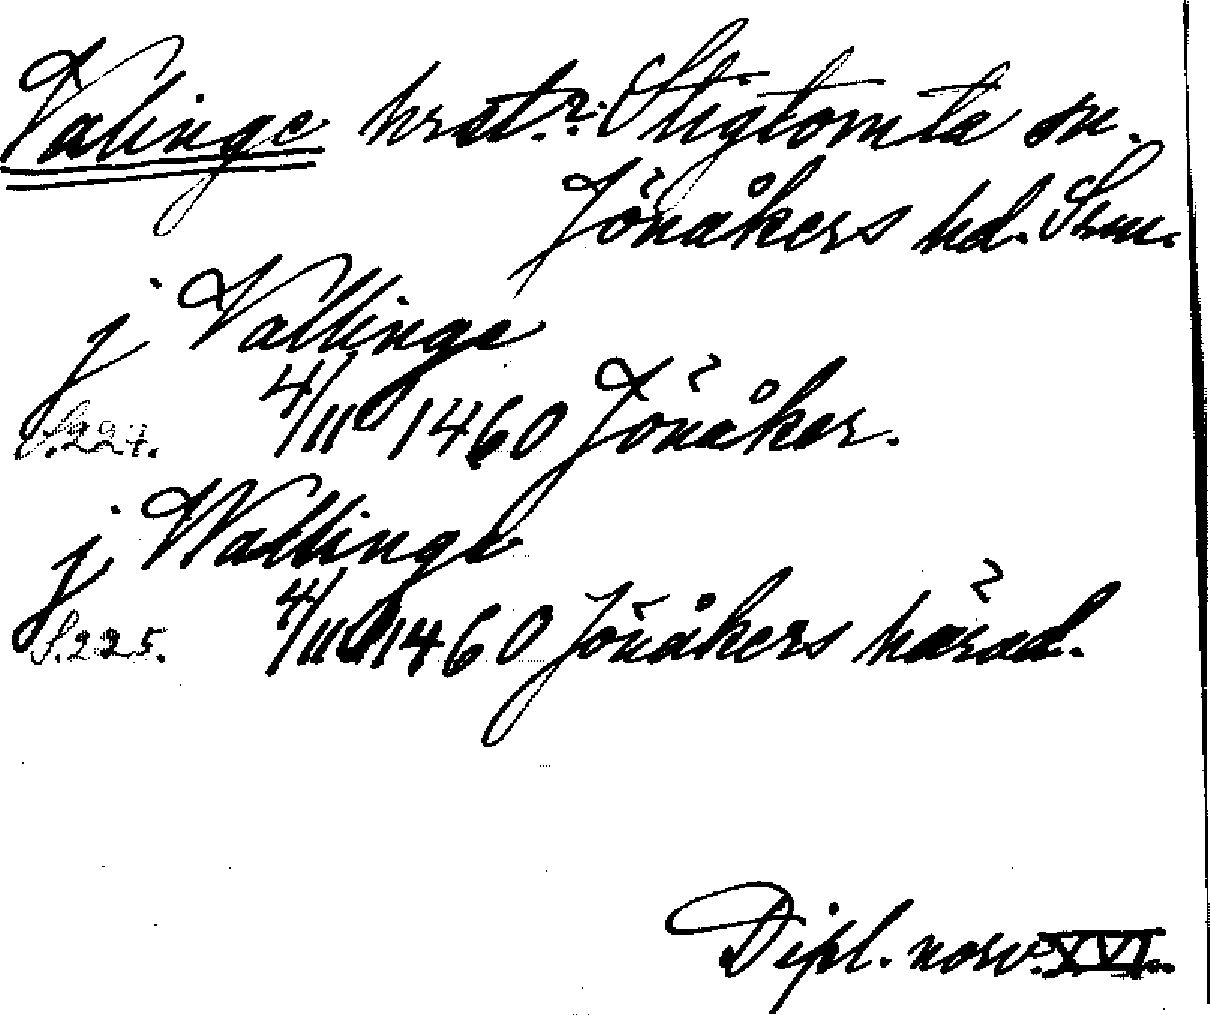 Valinge hrst.? Stigtomta sn.
Jönåkers hd. Srm.
j Vallinge
S. 224. 4/11 1460 Jönåker.
j Wallinge
S. 225. 4/11 1460 Jönåkers härad.
Dipl. norv. XVI.